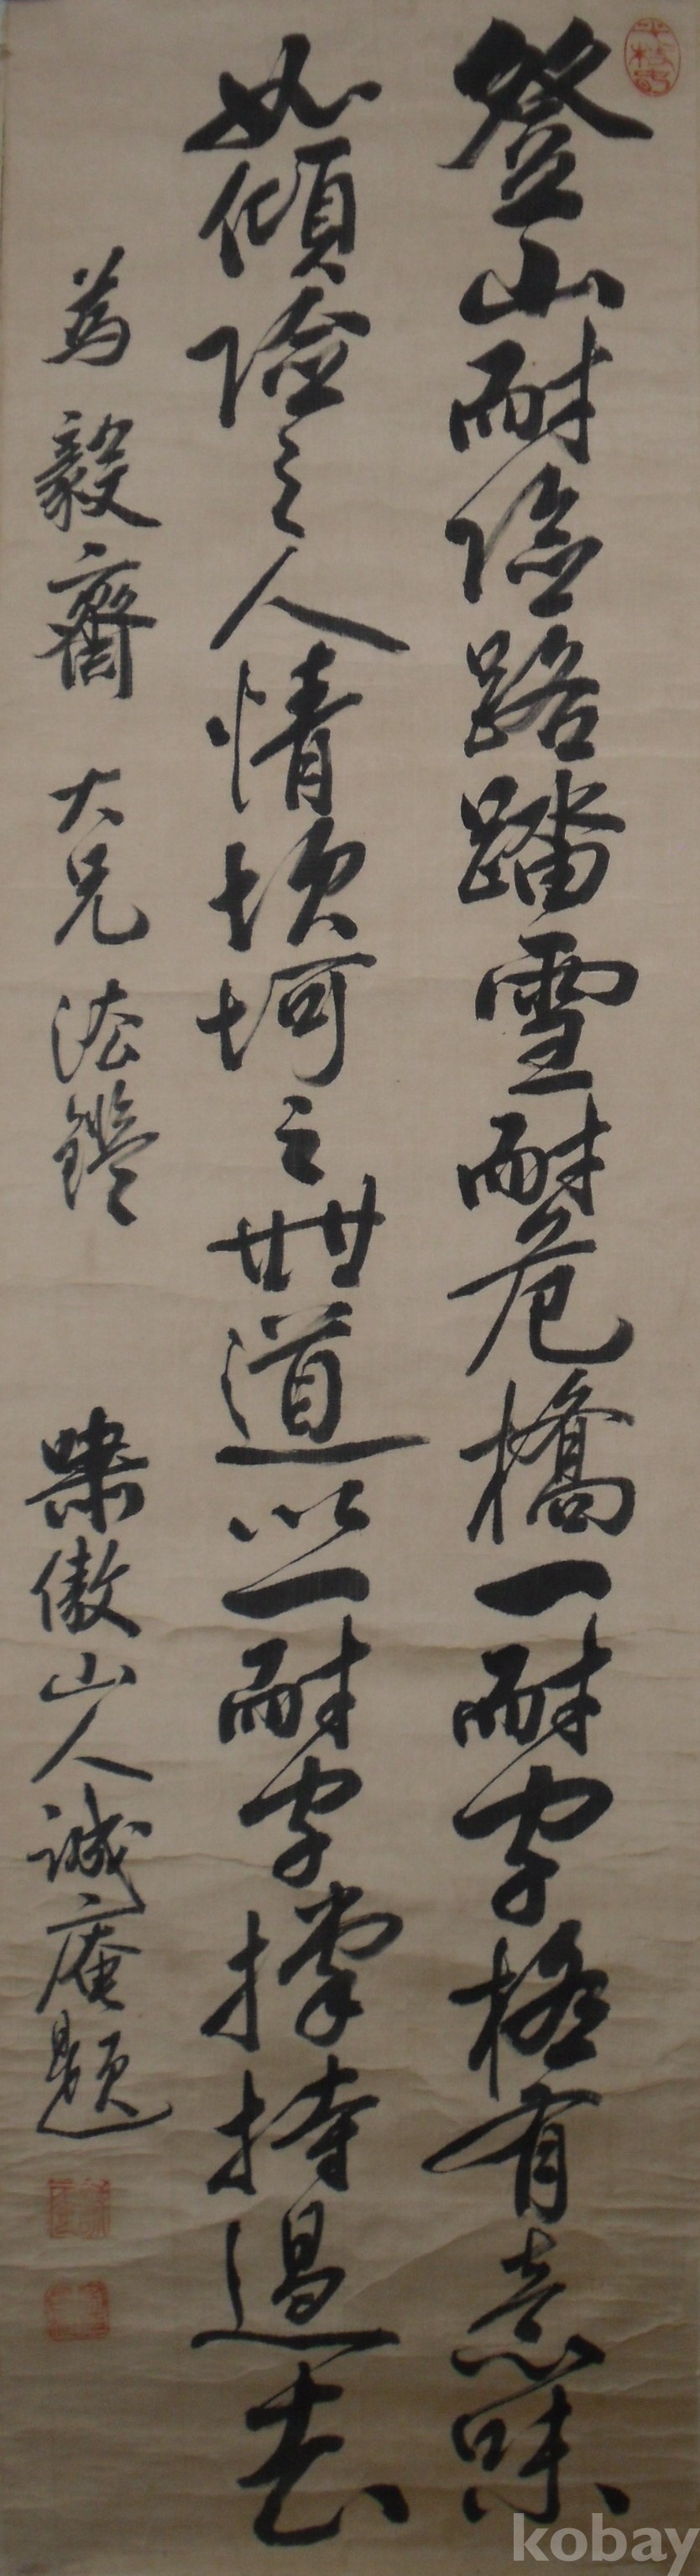 登山耐險路踏雪耐危橋一耐字極有意味
如傾險之人情坎坷之世道以一耐字撑持過去
為毅齋大兄法鑑
嘯傲山人誠庵題
kobay